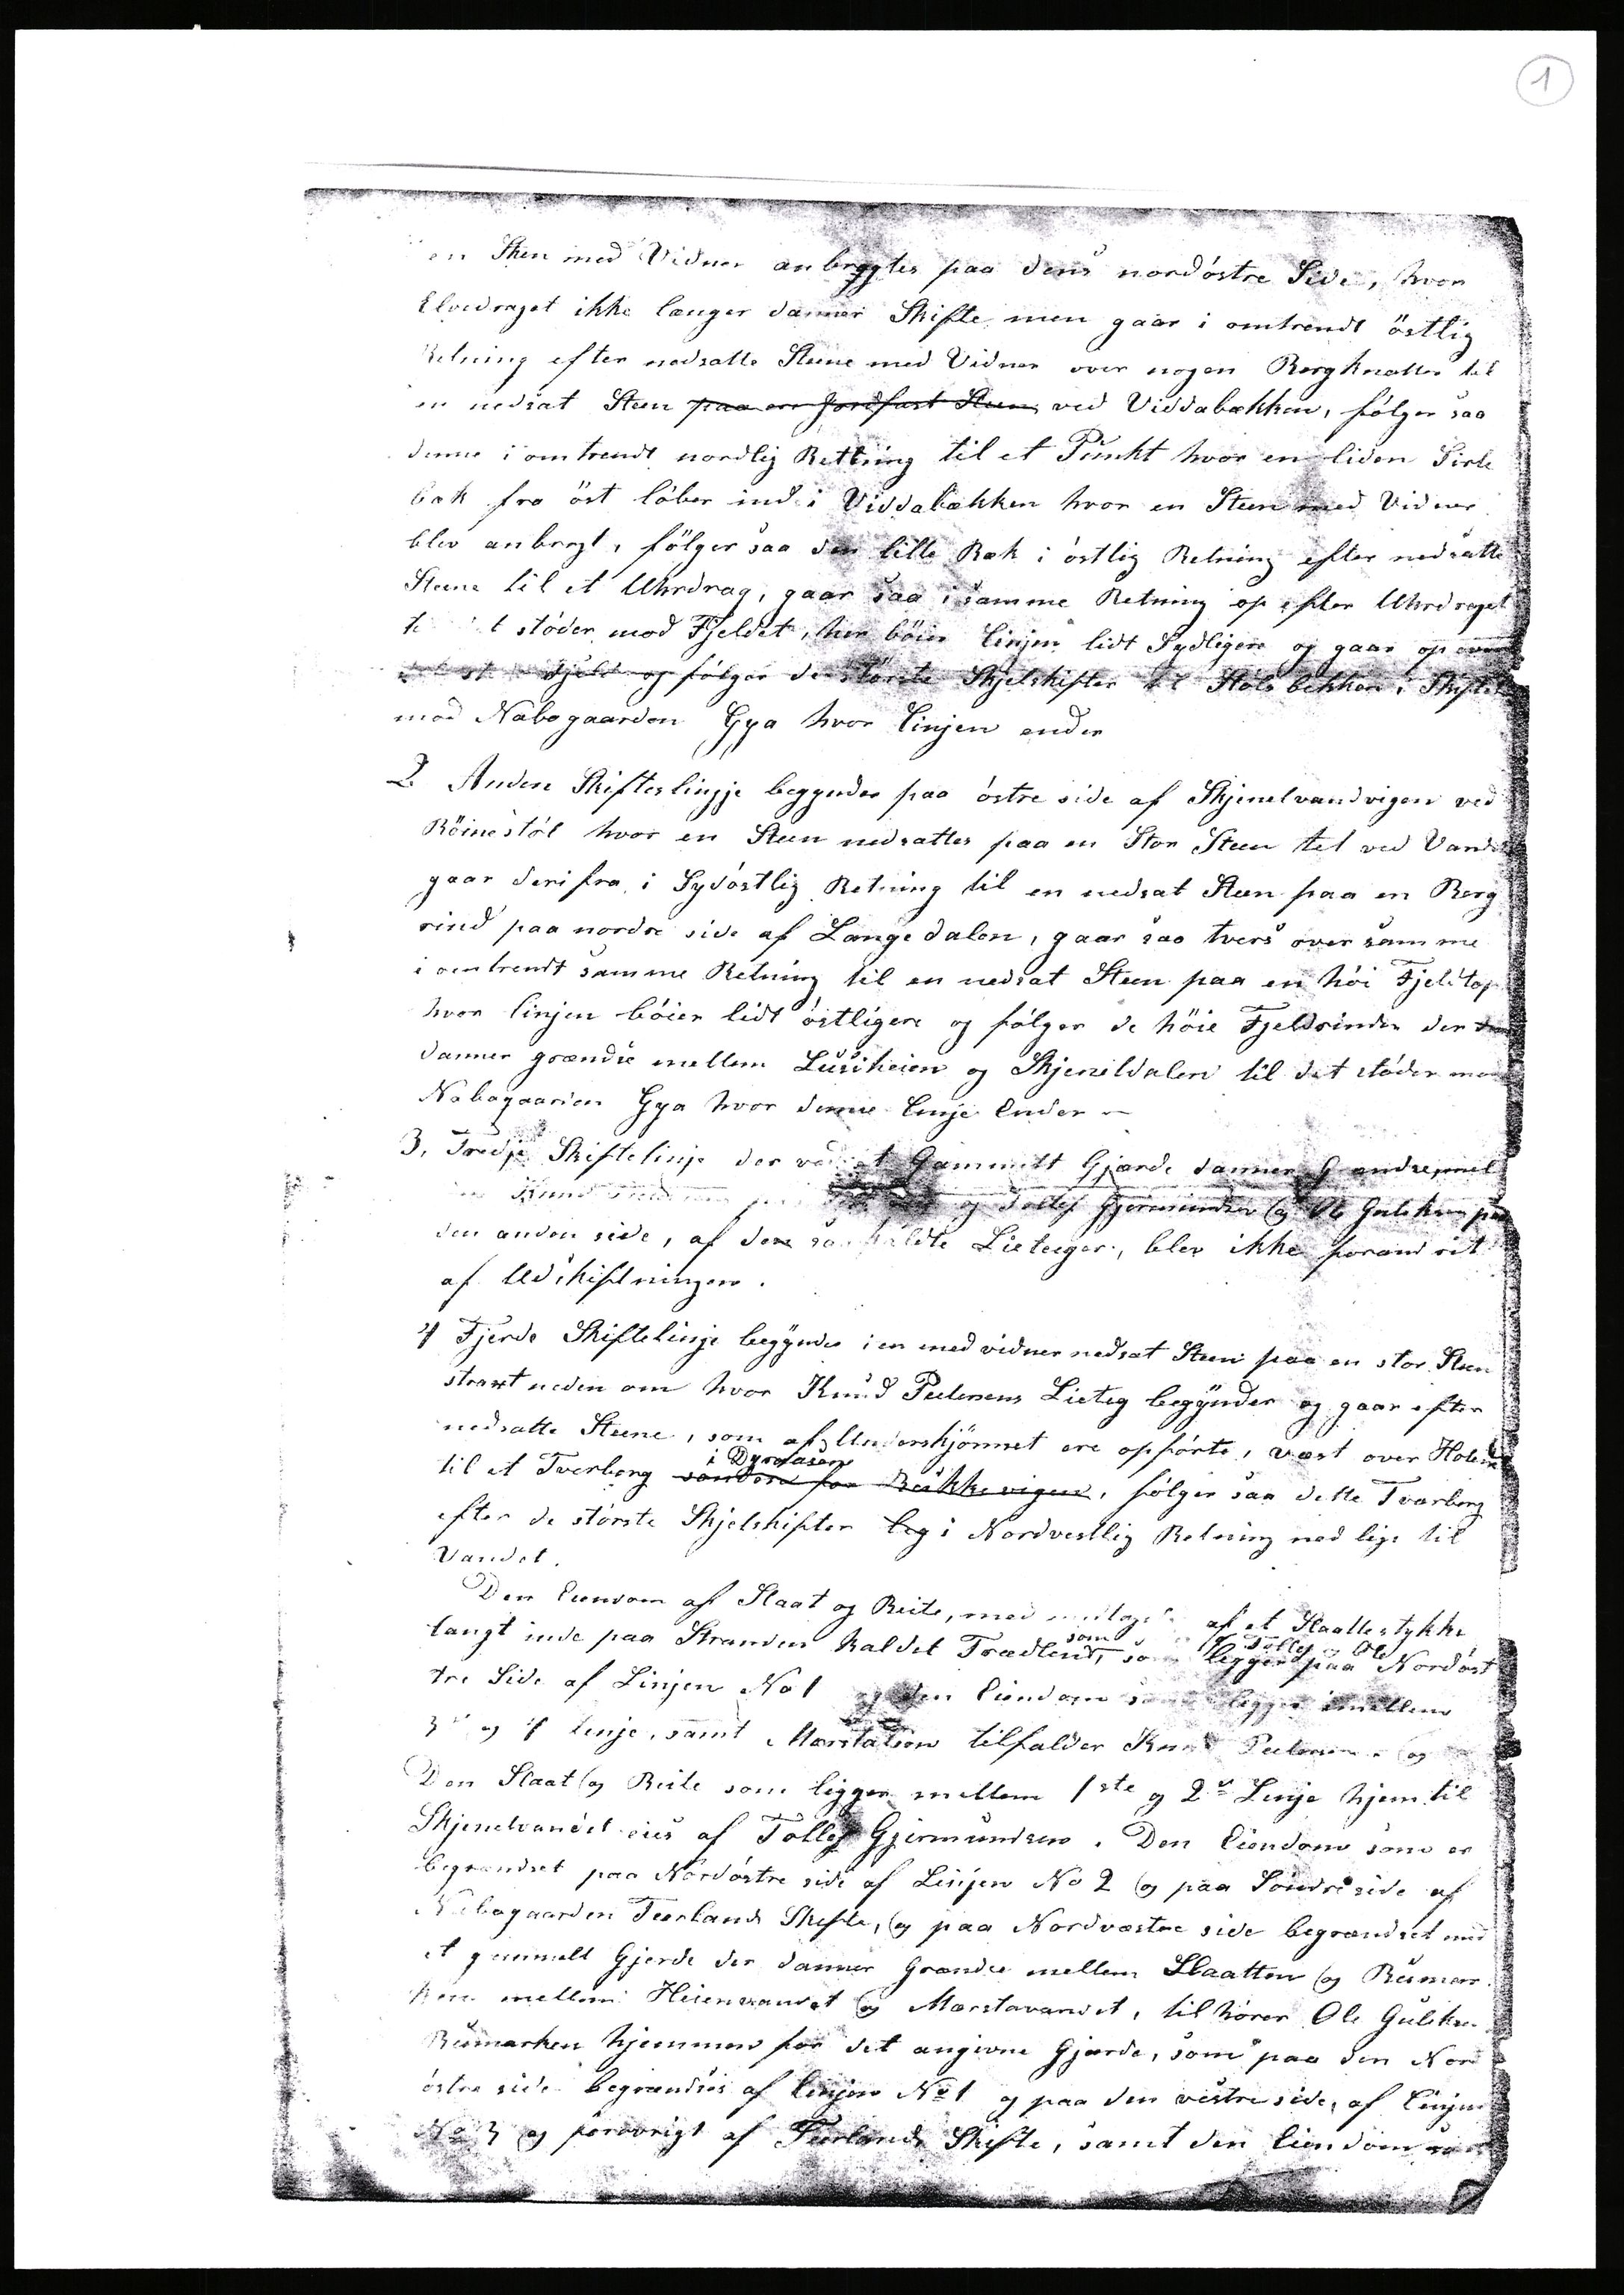 1
en Sten med Vidner anbragtes paa dens nordöstre Side, hvor
Elvedraget ikke længer danner Skifte men gaar i omtrendt östlig
Retning efter nedsatte Steene med Vidner over nogen Bergknatter til
en nedsat Steen paa en Jordfast Steen ved Viddabækken, fölger saa
denne i omtrendt nordlig Rettning til et Punkt hvor en liden Side
bæk fra öst löber ind i Viddabækken hvor en Steen med Vidner
blev anbragt, fölger saa den lille Bæk i östlig Retning efter nedsatte
Steene til et Uhrdrag, gaar saa i samme Retning op efter Uhrdraget
til det stöder mod Fjeldet, her böier Linjen lidt Sydligere og gaar op
Fjeld og fölger de störste Skjelskifter til Hölebekken i Skiftet
mod Nabogaarden Gya hvor Linjen ender
2 Anden Skifteslinje begynder paa östre side af Skjenelvandvigen ved
Böinestöl hvor en Steen nedsattes paa en Stor Steen tet ved Vandet
gaar derifra i Sydöstlig Retning til en nedsat Steen paa en Berg
rind paa nordre side af Langedalen, gaar saa tvers over samme
i omtrendt samme Retning til en nedsat Steen paa en höi Fjeldtop
hvor linjen böier lidt östligere og fölger de höie Fjeldrinder der
danner grændse mellem Lusiheien og Skjeneldalen til det stöder mod
Nabogaarden Gya hvor denne Linje Ender
3, Tredje Skiftelinje der ved et Gammelt Gjærde danner Grændse mel
Knud og Tollef Gjermundsen og Ole Guliksen paa
den anden side, af den saakaldte Lieteiger, blev ikke forandrit
af Udskiftningen.
4 Fjerde Skiftelinje begynder i en med vidner nedsat Steen paa en stor Steen
straxt neden om hvor Knud Pedersens Lieteg begynder og gaar efter
nedsatte Steene, som af Underskjönnet ere opförte, væst over
i Dyraasen
til et Tverberg söndere for Bukkevigen, fölger saa dette Tvarberg
efter de störste Skjelskifter og i Nordvestlig Retning ned lige til
Vandet.
Den Eiendom af Slaat og Beite, med undtagelse af et Slaattestykke
som Tollef Ole
langt inde paa Stranden kaldet Trædlend, som ligger paa Nordöst
tre Side af Linjen No 1 og den Eiendom som ligger imellem
3die og 4 linje, samt Marstalien tilfalder Knud Pedersen og
Den Slaat og Beite som ligger mellem 1ste og 2d Linje hjem til
Skjenelvandet eies af Tollef Gjermundsen. Den Eiendom som er
begrændset paa Nordöstre side af Linjen No 2 og paa Söndre side af
Nabogaarden Teerlands Skifte, og paa Nordvæstre side begrændset med
et gammelt Gjerde der danner Grændse mellem Slaatten og Bumar
ken mellem Heienvandet og Marstavandet, tilhörer Ole Guliksen
Bumarken hjemmen for det angivne Gjærde, som paa den Nord
östre side begrændses af linjen No 1 og paa den vestre side, af Linjen
No 3 og forövrigt af Teerlands Skifte, samt den Eiendom som